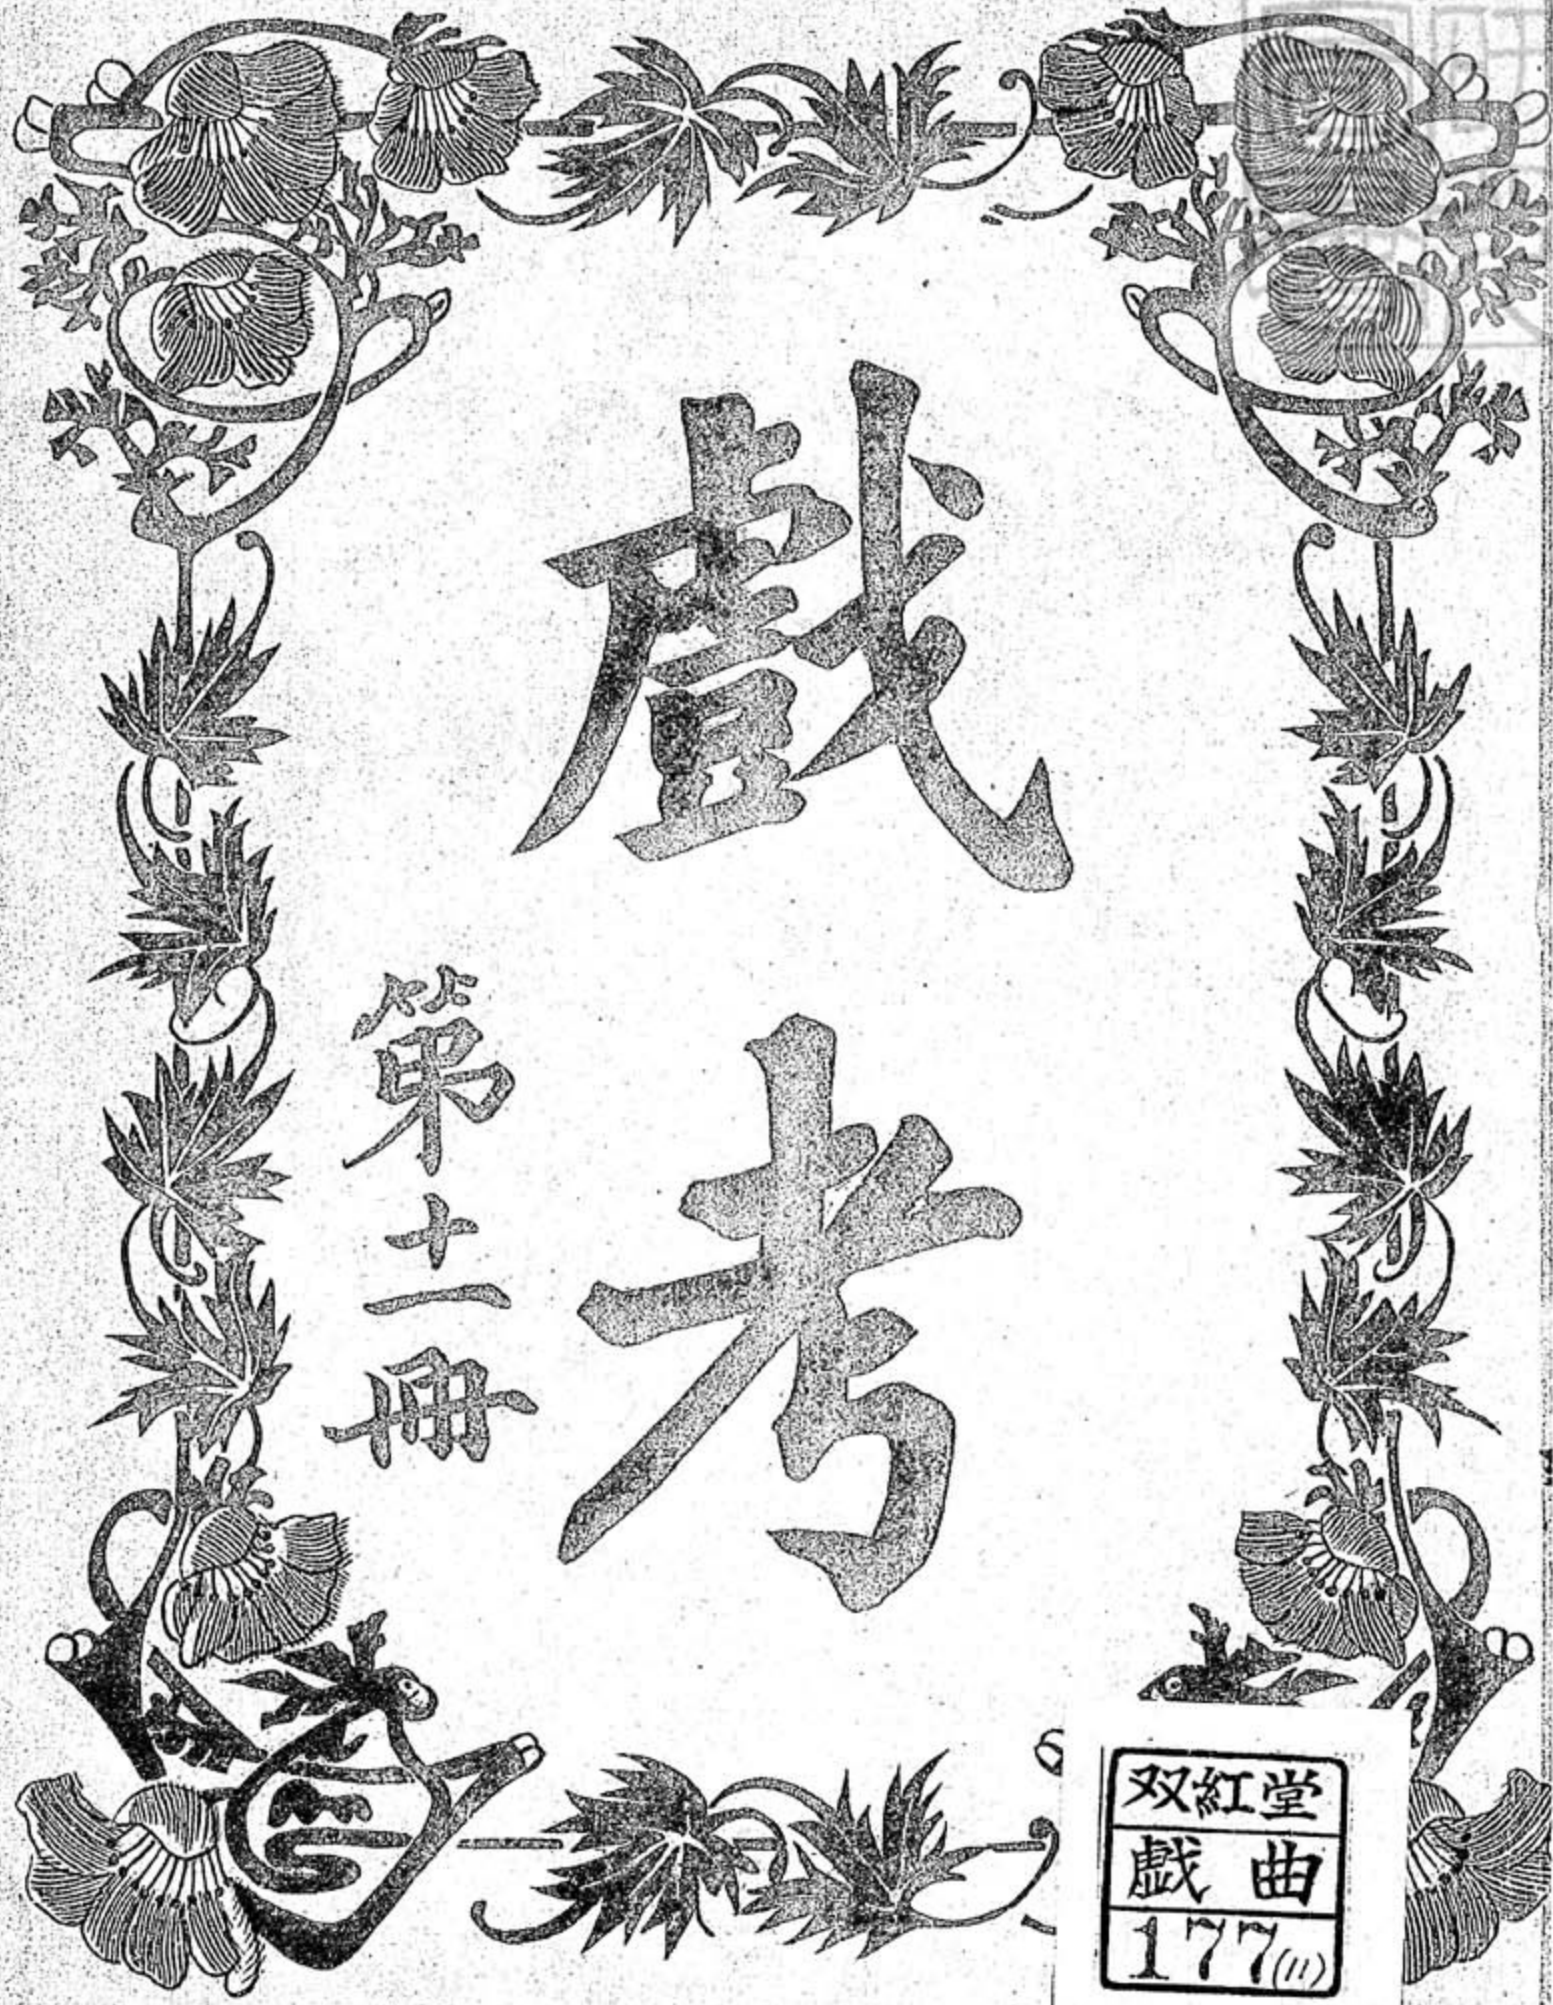 戲考
第十一冊
双紅堂
戯曲
177(11)